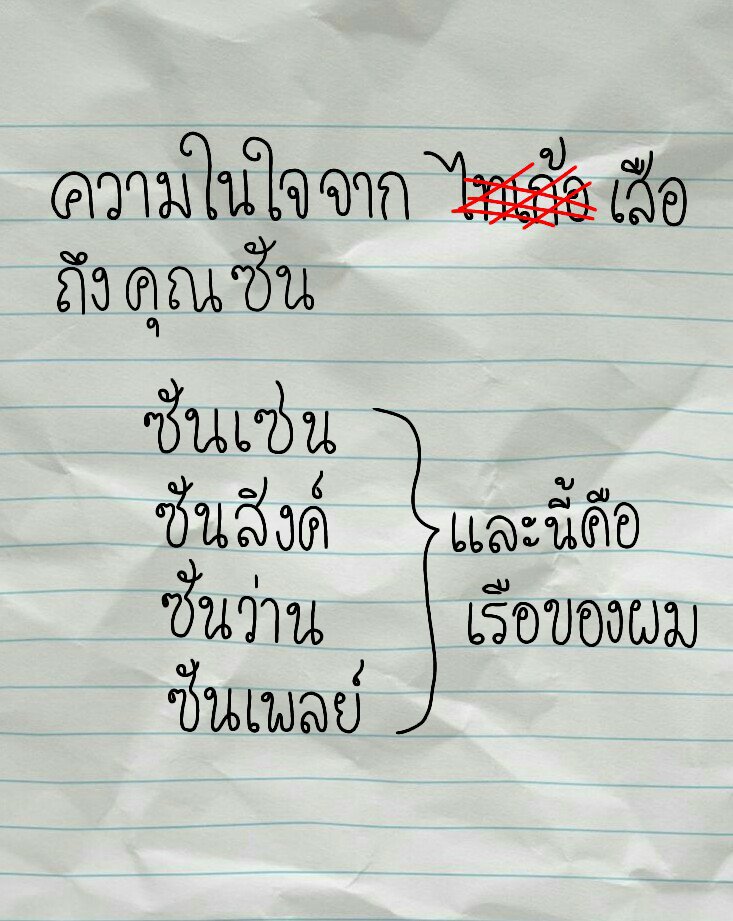 ความในใจจาก ไทเก้อ เสือ
ถึงคุณซัน
ซันเซน
ซันสิงค์
ซันว่าน
ซันเพลย์
และนี้คือ
เรือของผม